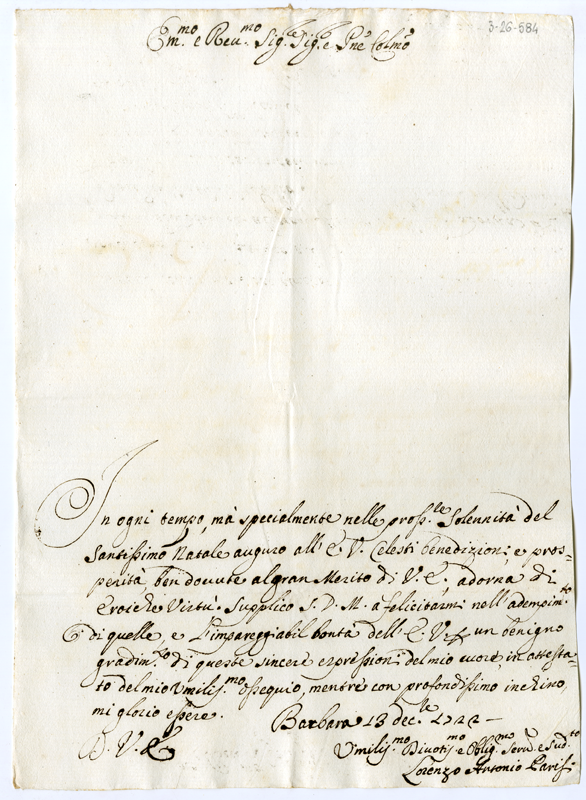 3-26-584
Em.mo e Reu.mo Sig.re Sig.e Pne Colmo
In ogni tempo, mà specialmente nelle pross.le Solennità del
Santissimo Natale auguro all' E. V. Celesti benedizioni, e pros=
perità ben douute al gran Merito di V. E., adorna di
Eroiche Virtù. Supplico S. D. M. a felicitarmi nell'adempim.to
di quelle, e l'impareggiabil bontà dell' E. V. un benigno
gradim.to di queste sincere espressioni del mio cuore in attesta=
to del mio Vmiliss.mo ossequio, mentre con profondissimo inchino,
mi glorio essere.
Barbara 13 dec.
D. V. E.
Vmilis.mo Diuotis.mo e Oblig.mo Seru. e Sud.to
Lorenzo Antonio Parisi